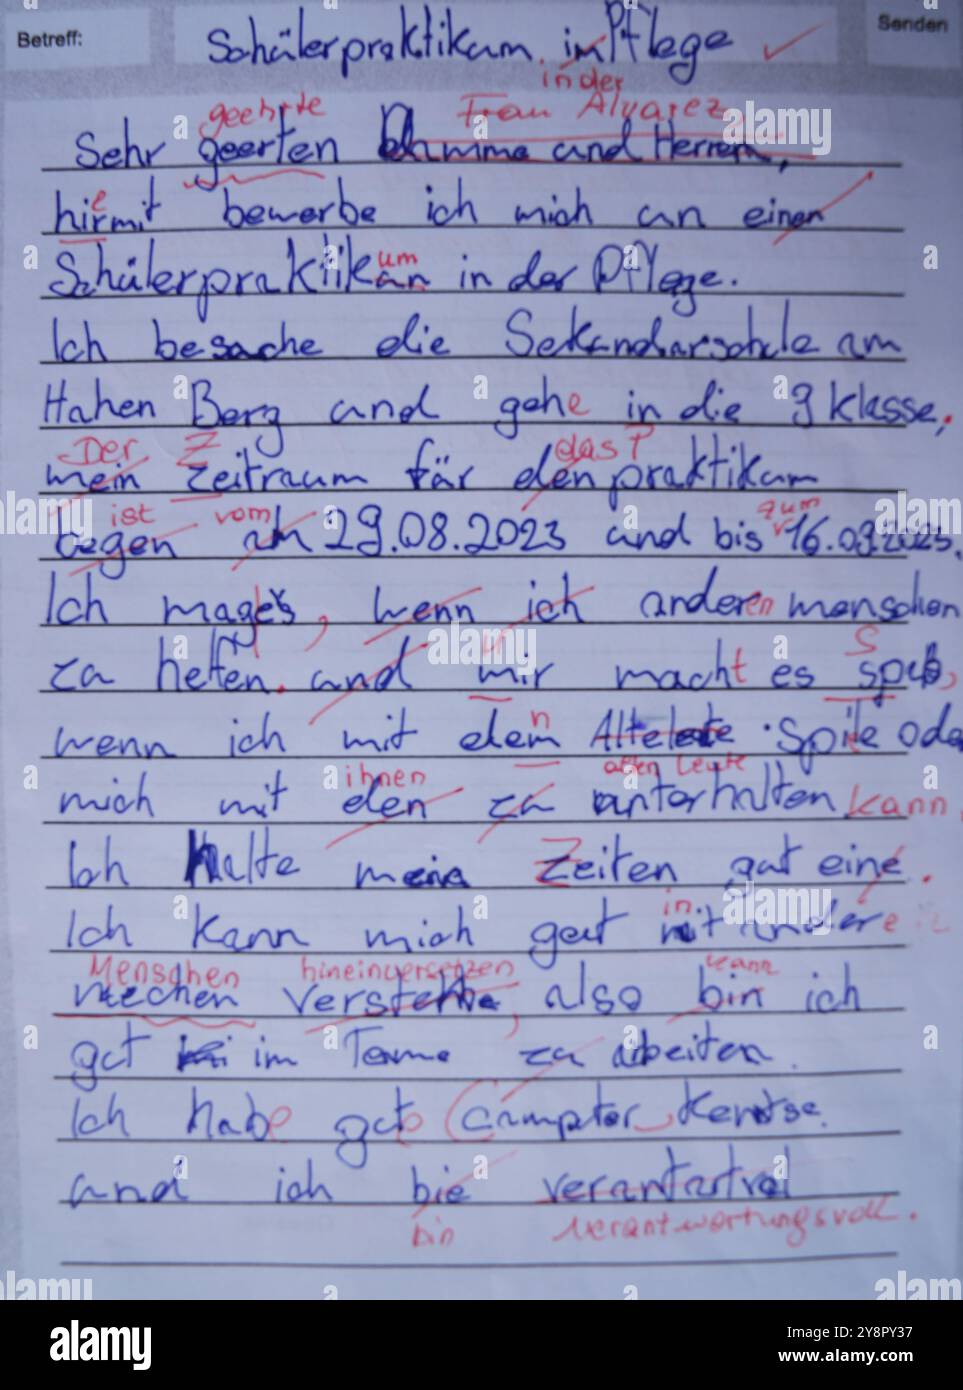 Betreff:
Senden
Schülerpraktikum im Pflege
in der
geehrte Frau Alvarez,
Sehr geerten Damme und Herren,
e
hirmit bewerbe ich mich an einen
um
Schülerpraktikan in der Pflege.
Ich besuche die Sekundarschule am
Hahen Berg und gehe in die 9 klasse.
Der Z das P
mein Zeitraum für den praktikum
ist vom zum
begen am 29.08.2023 und bis 16.09.2023.
Ich mag es, wenn ich anderen menschen
za helfen. und mir macht es spaß,
S
wenn ich mit dem Alteleute Spile ode
n
ihnen alten Leute
mich mit den za unterhalten kann
Ich halte meine Zeiten gut eine.
in
Ich kann mich gut mit andere
Menschen hineinversetzen kann
mechen verstehe, also bin ich
gut im Teame za arbeiten.
Ich habe gute Campter Kentse.
und ich bie verantartvol
bin verantwortungsvoll.
alamy
a
Image ID: 2Y8PY37
www.alamy.com